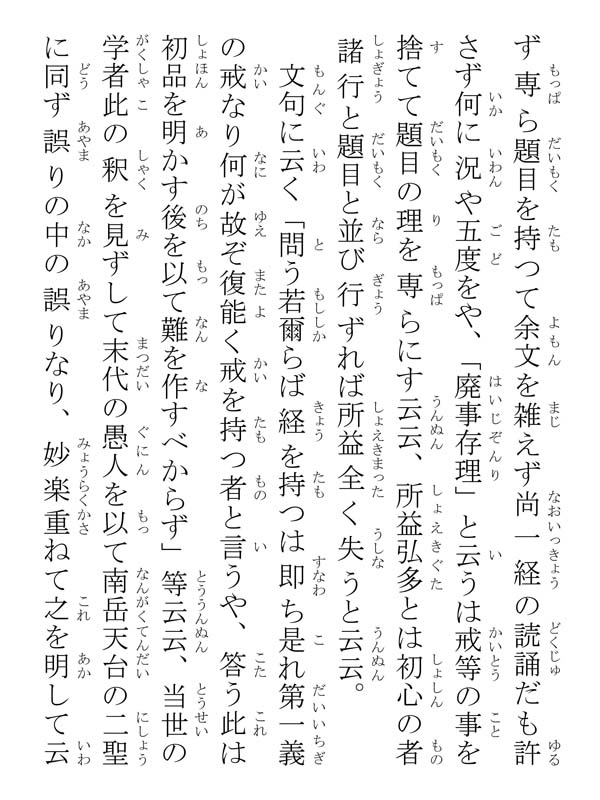 ず専ら題目を持つて余文を雑えず尚一経の読誦だも許
さず何に況や五度をや、「廃事存理」と云うは戒等の事を
捨てて題目の理を専らにす云云、所益弘多とは初心の者
諸行と題目と並び行ずれば所益全く失うと云云。
文句に云く「問う若爾らば経を持つは即ち是れ第一義
の戒なり何が故ぞ復能く戒を持つ者と言うや、答う此は
初品を明かす後を以て難を作すべからず」等云云、当世の
学者此の釈を見ずして末代の愚人を以て南岳天台の二聖
に同ず誤りの中の誤りなり、妙楽重ねて之を明して云